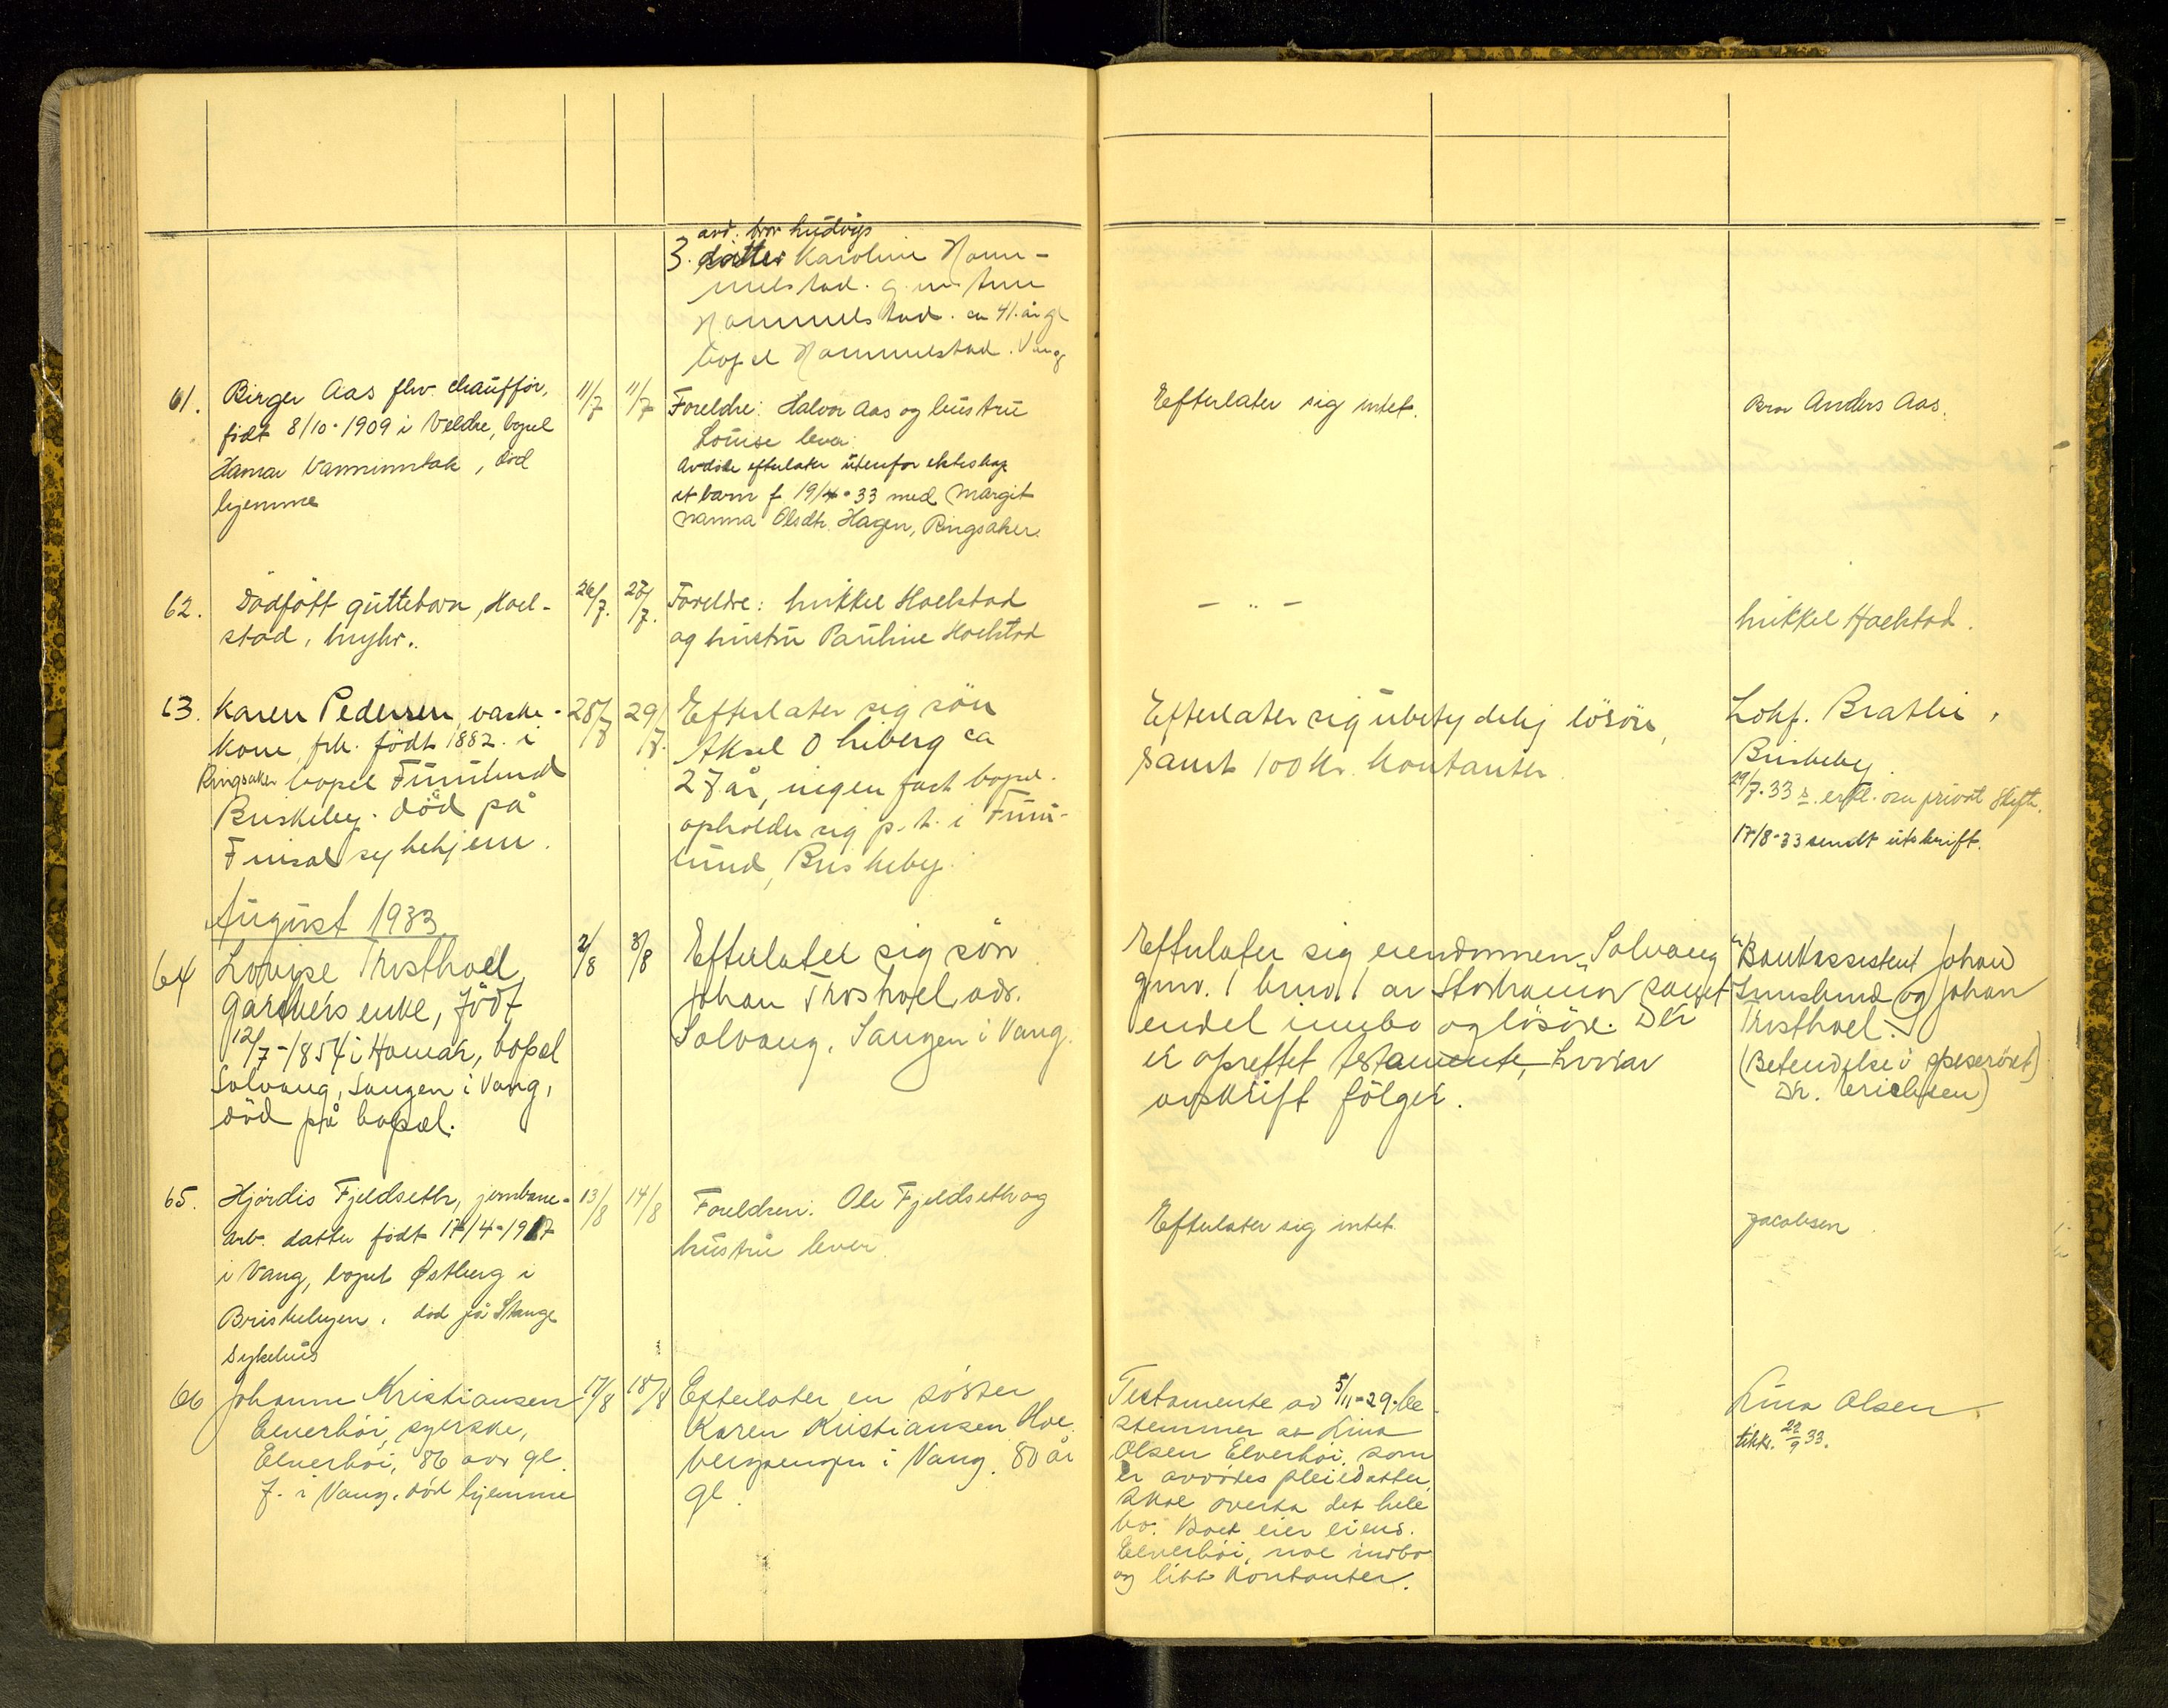 avd. bror Ludvigs
3. datter Karoline Nom-
melstad. g. m. Arne
Nommelstad. ca 41. år gl
bopel Nommelstad. Vang
61.
Birger Aas fhv. chauffør,
født 8/10-1909 i Veldre, bopel
Hamar Vanninntak, død
hjemme
11/7
11/7
Foreldre: Halvor Aas og hustru
Louise lever.
Avdøde efterlater utenfor ekteskap
et barn f. 19/4-33 med Margit
Nanna Olsdtr. Hagen, Ringsaker.
Efterlater sig intet.
Bror Anders Aas.
62.
Dødfødt guttebarn, Hoel-
stad,
26/7.
27/7.
Foreldre: Mikkel Hoelstad
og hustru Pauline Hoelstad
— „ —
Mikkel Hoelstad.
63.
Karen Pedersen, vaske-
kone, frk. født 1882. i
Ringsaker bopel Furulund
Briskeby. død på
Frisal sykehjem.
28/7
29/7.
Efterlater sig sön
Aksel O Luberg ca
27 år, ingen fast bopel.
opholder sig p. t. i Furu-
lund, Briskeby.
Efterlater sig ubetydelig lösöre,
samt 100 kr. kontanter.
Lohf. Brathi,
Briskeby.
29/7-33 s. erkl. om privat skifte.
17/8-33 sendt utskrift.
August 1933.
64
Lovise Throsthoel,
garvers enke, født
12/7-1854 i Hamar, bopel
Solvang, Sangen i Vang,
död på bopel.
2/8
3/8
Efterlater sig sön
Johan Throshoel adr.
Solvang. Sangen i Vang.
Efterlater sig eiendommen „Solvang"
gnv. 1 brnv. 1 av Storhamar samt
endel innbo og lösöre. Der
er oprettet testamente, hvorav
avskrift fölger.
Bankassistent Johan
Linnslund og Johan
Throsthoel.
(Betendelse i spiserøret)
Dr. Erichsen)
65.
Hjørdis Fjeldseth, jernbane-
arb. datter født 17/4-1917
i Vang, bopel Østberg i
Briskebyen. død på Stange
Sykehus
13/8
14/8
Foreldren: Ole Fjeldseth og
hustru lever.
Efterlater sig intet.
Jacobsen.
66
Johanne Kristiansen
Elverhöi, syerske,
Elverhöi, 86 aar gl.
f. i Vang. död hjemme
17/8
18/8
Efterlater en söster
Karen Kristiansen Hoe
bergsengen i Vang. 80 år
gl.
Testamente av 5/11-29. be
stemmer at Lina
Olsen Elverhöi, som
er avdødes pleiedatter,
skal overta det hele
bo. Boet eier eiend.
Elverhöi, noe indbo
og litt kontanter.
Lina Olsen.
tilkr. 22/9 33.